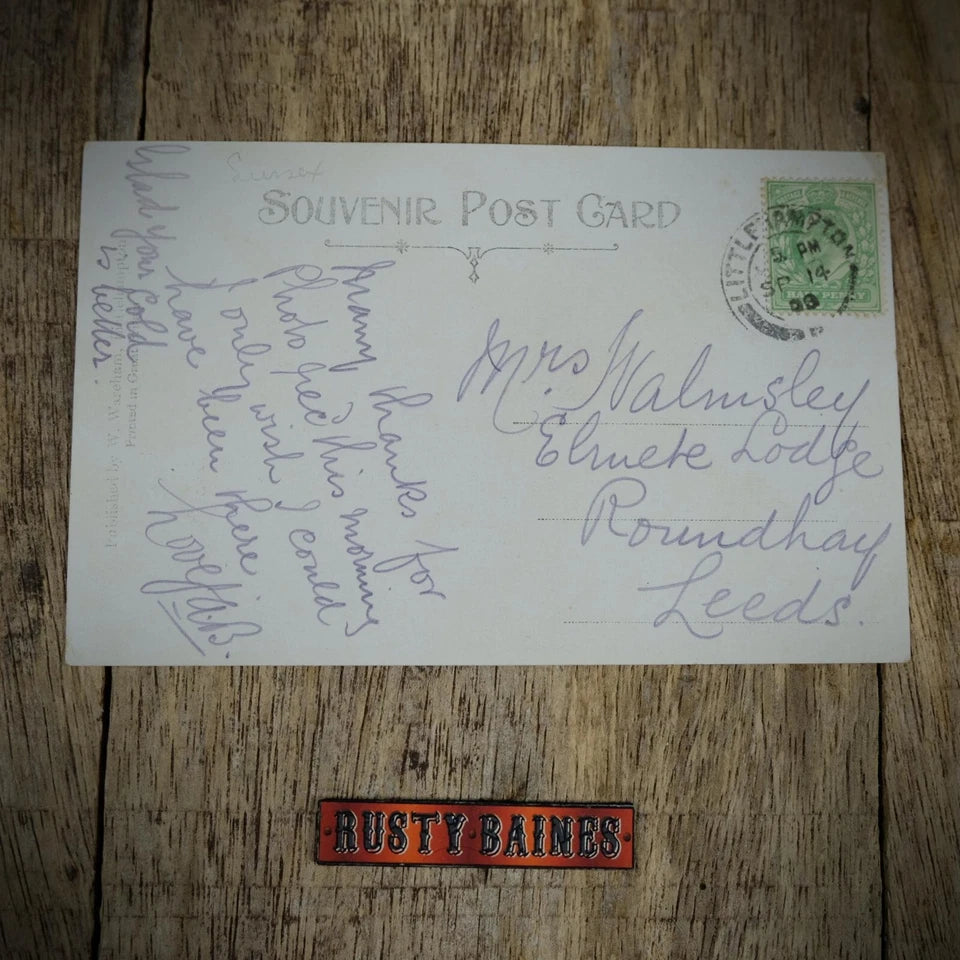 Sussex
SOUVENIR POST CARD
LITTLEHAMPTON
5 PM
SP 14
09
HALFPENNY
Many thanks for
Photo rec'd this morning
I only wish I could
have been there
Love
Glad your Cold
is better.
Mrs. Walmsley
Elmete Lodge
Roundhay
Leeds.
Published by W. Wareham, Littlehampton
Printed in
RUSTY·BAINES